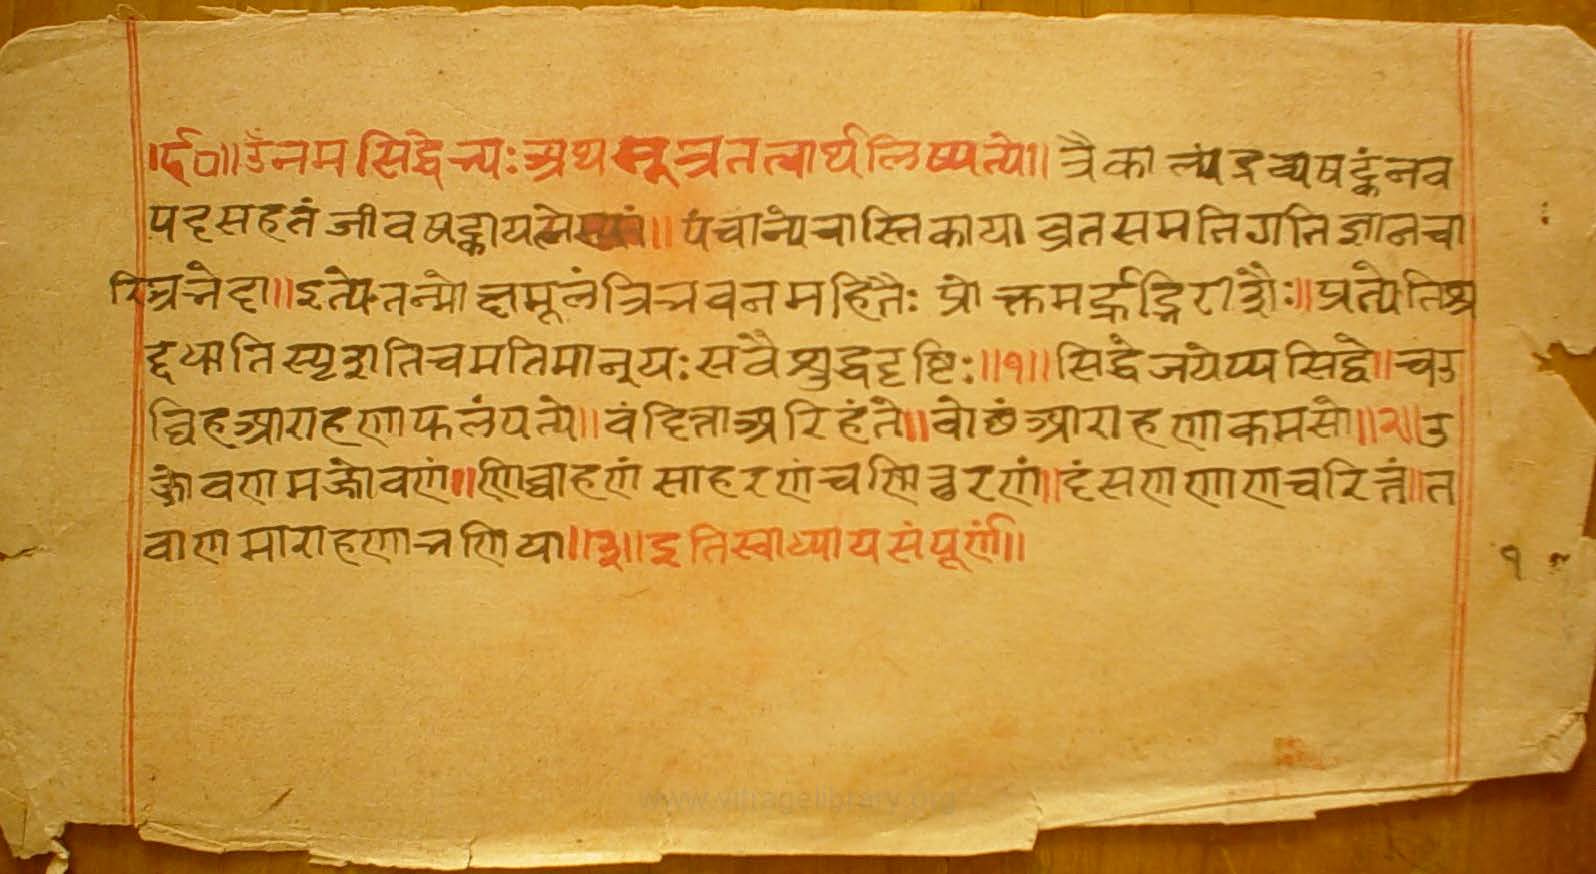 ।र्द०॥ ॐ नम सिद्धेभ्यः अथ सूत्रतत्वार्थ लिष्यत्ये॥ त्रैकाल्यं द्रव्यषट्कं नव
पद सहतं जीव षट्काय लेस्या॥ पंचान्ये चास्तिकाया व्रत समति गति ज्ञान चा
रित्र भेदा॥ इत्येतन्मोक्षमूलं त्रिभवन महितैः प्रोक्तमर्हद्भिरीशैः॥ प्रत्येति श्र
द्दधाति स्पृशति च मतिमान् यः स वै शुद्धदृष्टिः॥१॥ सिद्धे जयप्पसिद्धे॥ चउ
व्विह आराहणाफलं पत्ये॥ वंदित्ता अरिहंते॥ वोछं आराहणा कमसो॥२॥ उ
ज्जोवणमुज्जोवणं॥ णिव्वाहणं साहरणं च णिच्छरणं॥ दंसण णाण चरित्तं॥ त
वाणमाराहणा भणिया॥३॥ इति स्वाध्याय संपूर्णं॥
१
www.villagelibrary.org